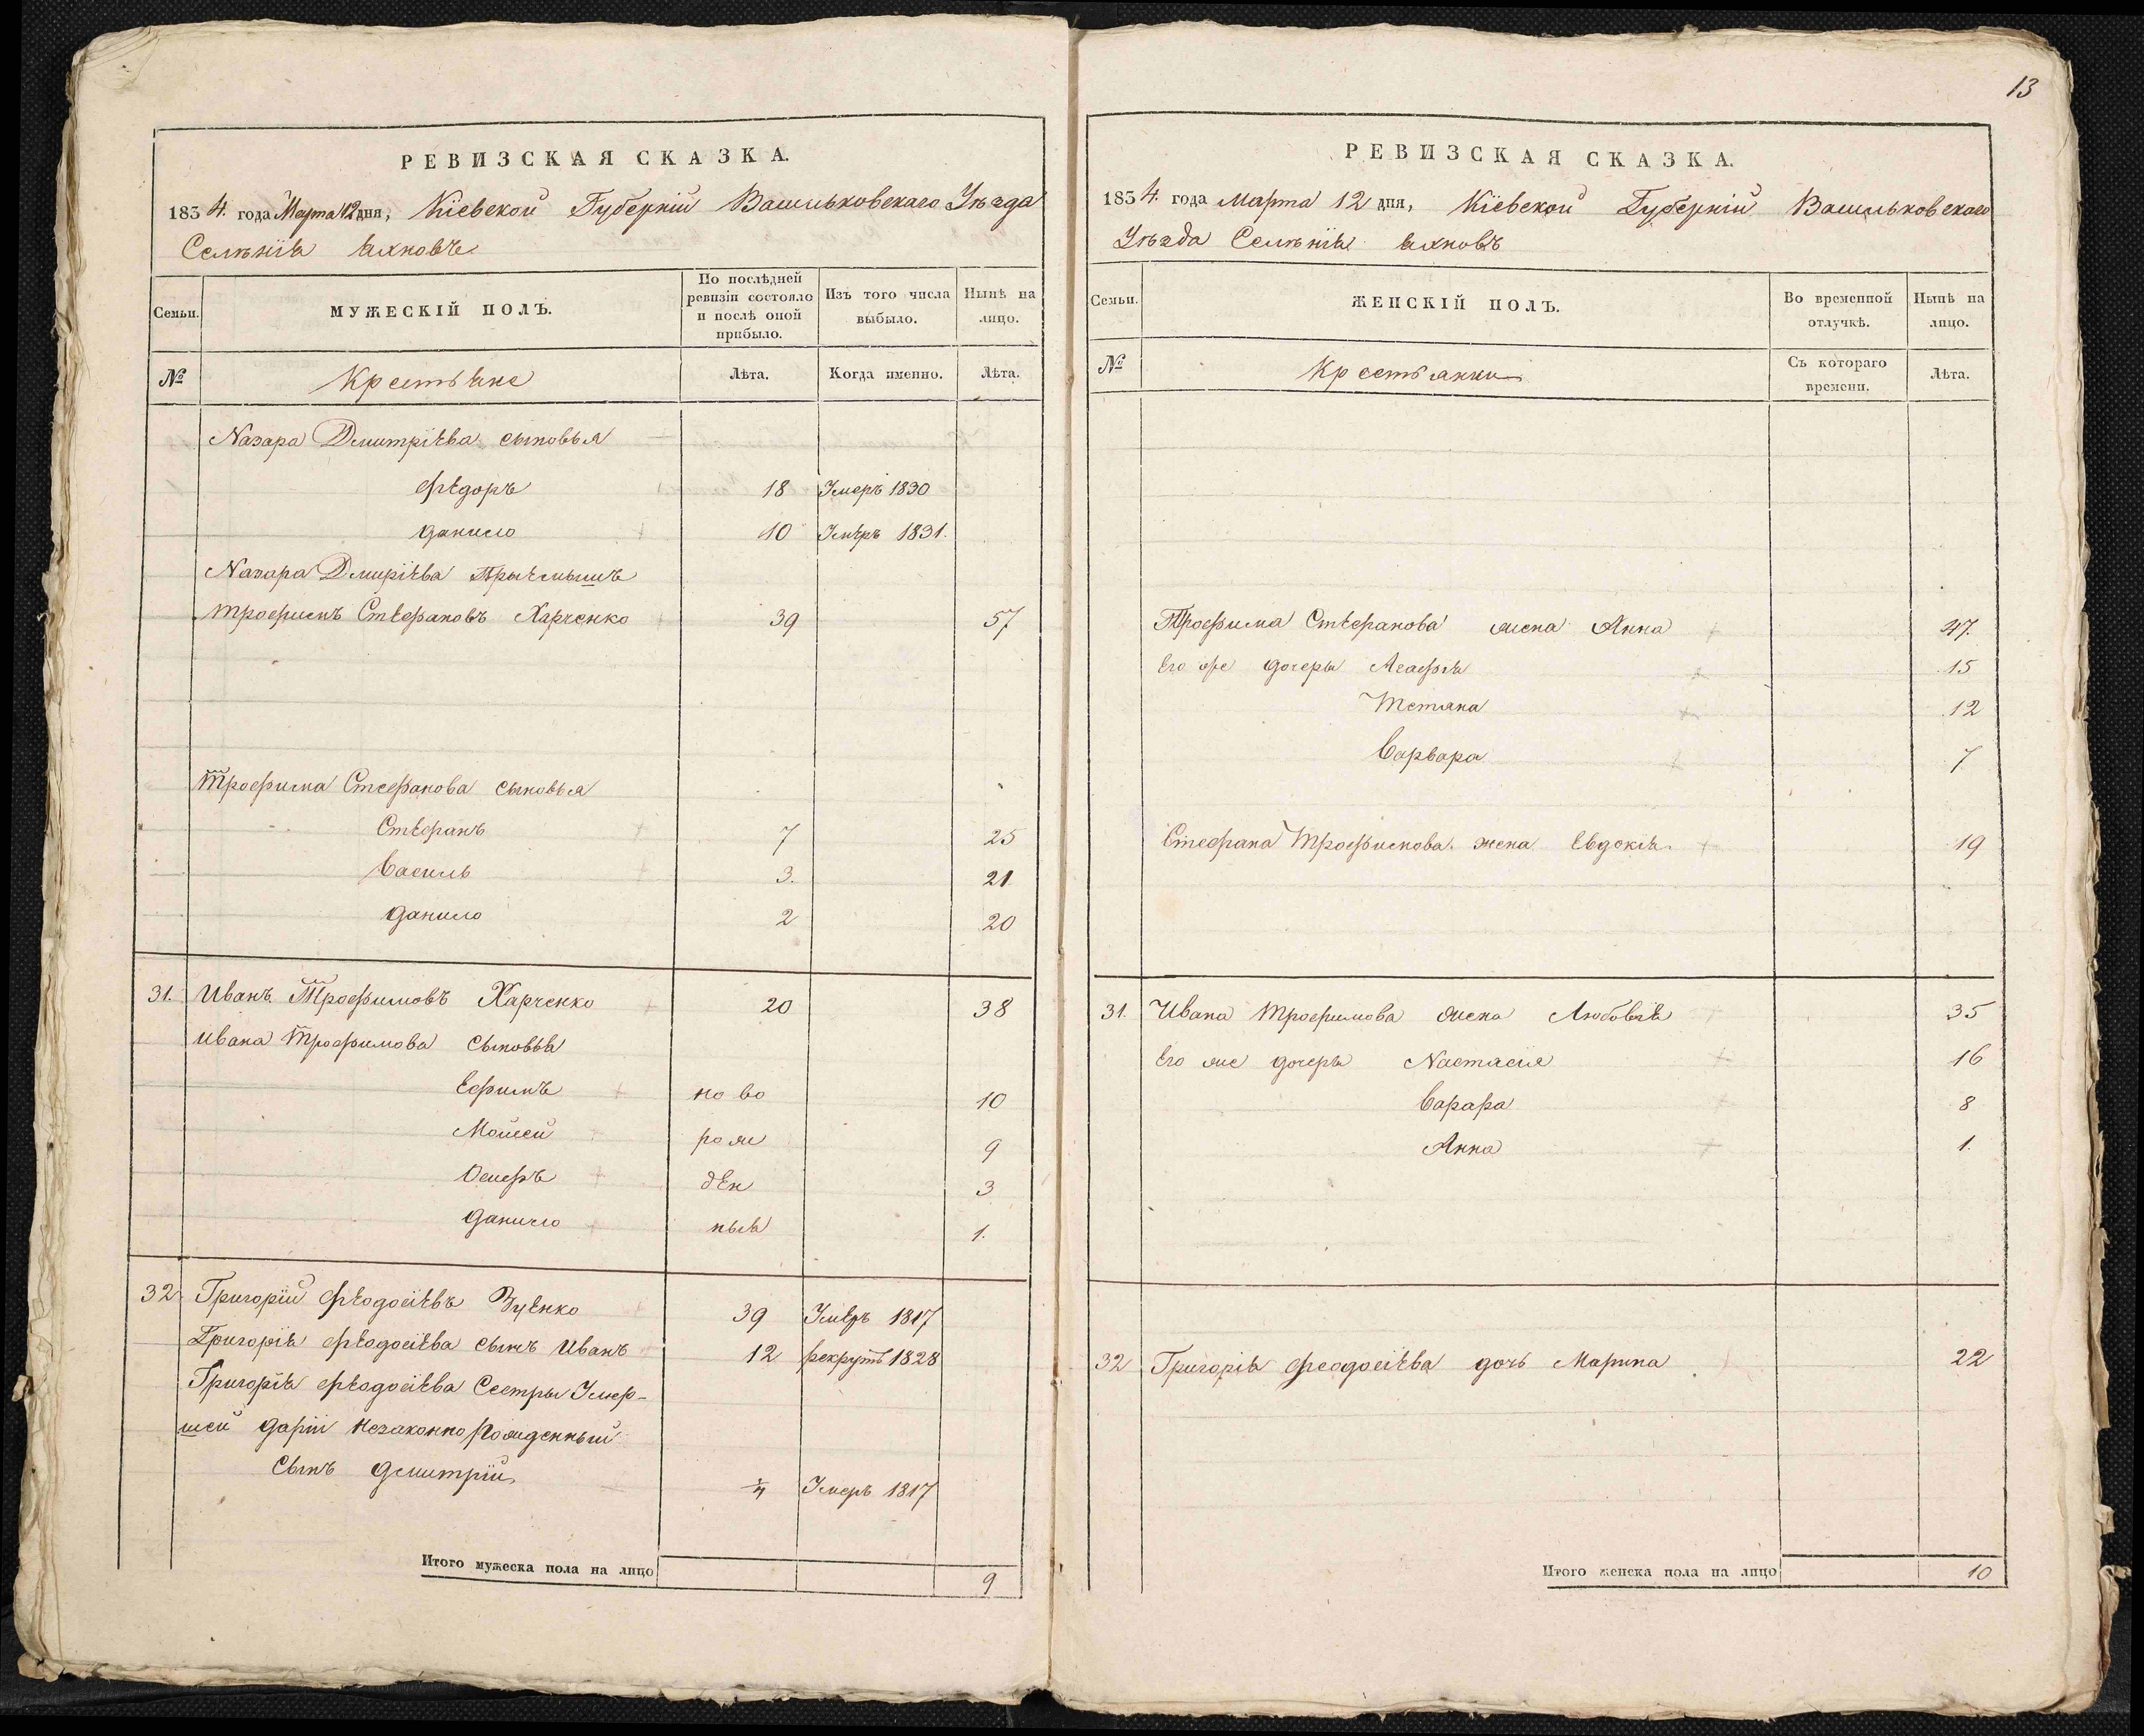 РЕВИЗСКАЯ СКАЗКА.
1834. года Марта 12 дня, Кіевской Губерніи Васильковскаго Уѣзда
Селѣнія Яхновъ
Семьи.
МУЖЕСКІЙ ПОЛЪ.
По послѣдней ревизіи состояло и послѣ оной прибыло.
Изъ того числа выбыло.
Нынѣ на лицо.
№
Крестьяне
Лѣта.
Когда именно.
Лѣта.
Назара Дмитріева сыновья
Федоръ 18 Умеръ 1830
Данило 10 Умеръ 1831.
Назара Дмиріева Прыемышъ
Трофимъ Стефановъ Харченко 39 57
Трофима Стефанова сыновья
Стефанъ 7 25
Василь 3. 21
Данило 2 20
31. Иванъ Трофимовъ Харченко 20 38
Ивана Трофимова Сыновья
Ефимъ но во 10
Мойсей рож 9
Осифъ ден 3
Данило ныя 1.
32 Григорій Феодосіевъ Зуенко 39 Умеръ 1817
Григорія Феодосіева сынъ Иванъ 12 рекрутъ 1828
Григорія Феодосіева Сестры Умер-
шей Даріи Незаконно Рожденный
Сынъ Дмитрій 1/4 Умеръ 1817
Итого мужеска пола на лицо 9
13
РЕВИЗСКАЯ СКАЗКА.
1834. года Марта 12 дня, Кіевской Губерніи Васильковскаго
Уѣзда Селѣнія Яхновъ
Семьи.
ЖЕНСКІЙ ПОЛЪ.
Во временной отлучкѣ.
Нынѣ на лицо.
№
Крестьянки
Съ котораго времени.
Лѣта.
Трофима Стефанова жена Анна 47.
Его же дочеры Агафія 15
Тетяна 12
Варвара 7
Стефана Трофимова жена Евдокія 19
31. Ивана Трофимова жена Любовія 35
Его же дочеры Настасія 16
Варара 8
Анна 1.
32 Григорія Феодосіева дочь Марина 22
Итого женска пола на лицо 10